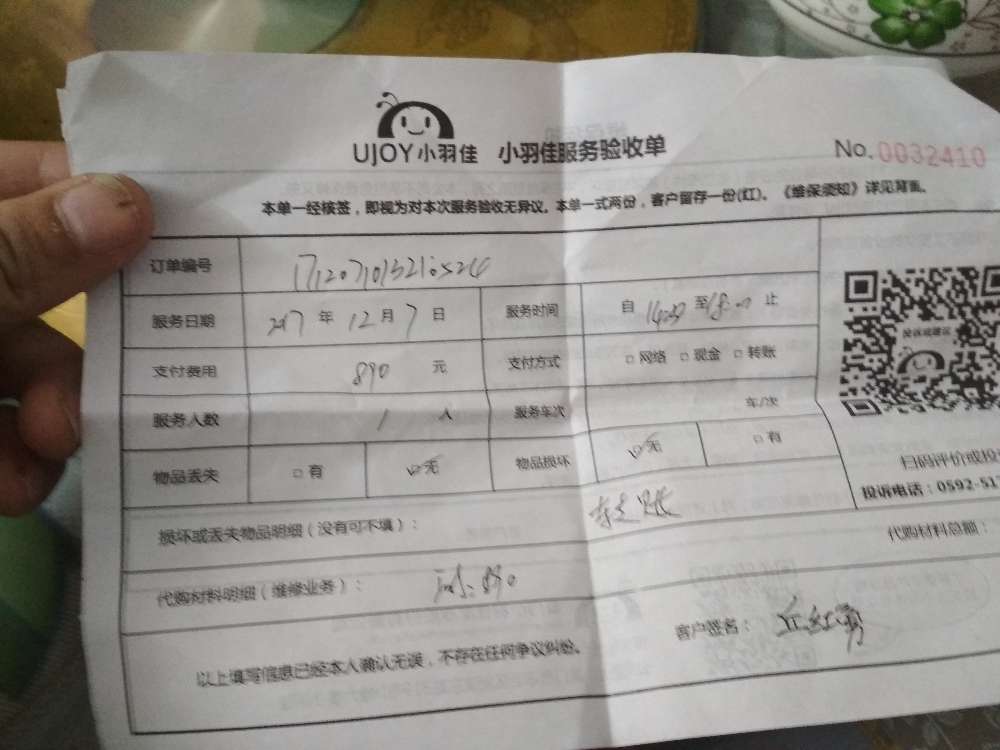 UJOY小羽佳 小羽佳服务验收单 No.0032410
本单一经核签，即视为对本次服务验收无异议。本单一式两份，客户留存一份(红)。《维保须知》详见背面。
订单编号
服务日期 2017年12月7日 服务时间 自 至 止
支付费用 890元 支付方式 □网络 □现金 □转账
服务人数 1人 服务车次 车/次
物品丢失 □有 ☑无 物品损坏 ☑无 □有
投诉或建议
扫码评价或投
投诉电话：0592-517
损坏或丢失物品明细（没有可不填）：
代购材料总额：
代购材料明细（维修业务）： 890
以上填写信息已经本人确认无误，不存在任何争议纠纷。 客户签名：